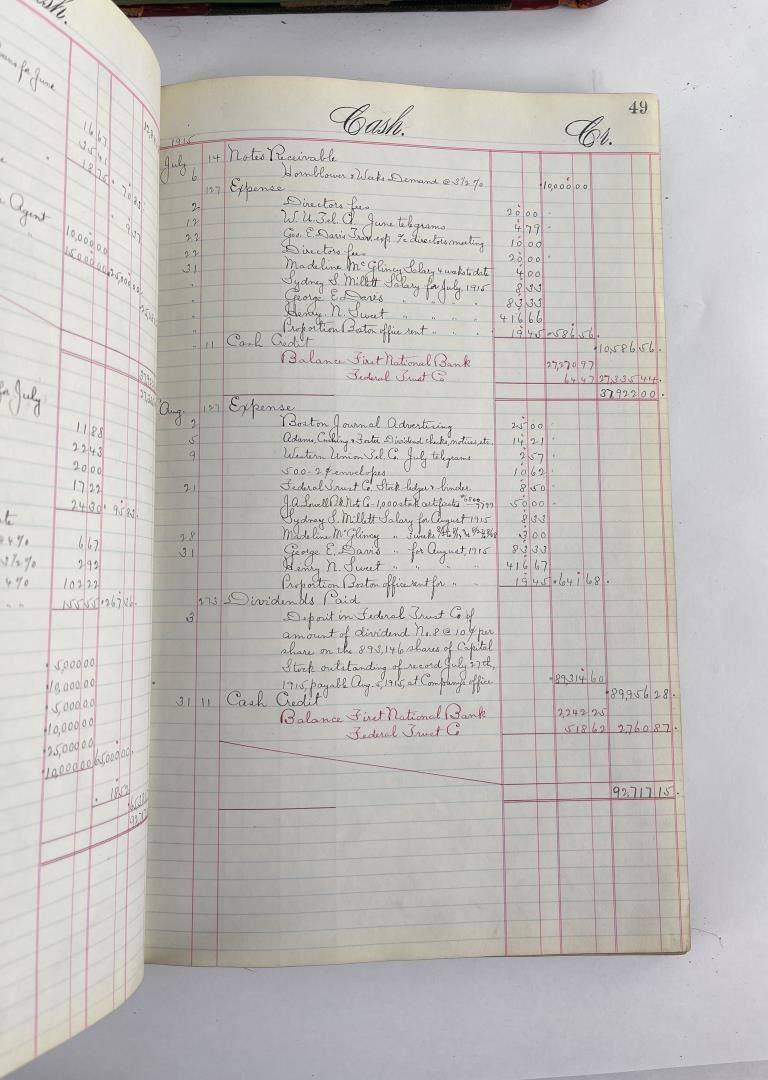 sh.
for June
16 67
35 41
18 75
Agent
10,000 00
15,000 00 25,000 00
for July
11 88
22 43
20 00
17 22
24 30 95 83
6 67
3½% 2 92
4% 102 22
155 55 267 36
5,000 00
10,000 00
5,000 00
10,000 00
25,000 00
10,000 00 65,000 00
Cash. Cr. 49
1915
July 14 Notes Receivable
6 Hornblower & Weeks Demand @ 3½% 10,000 00
127 Expense
2 Directors fees 20 00
12 W. U. Tel. Co. June telegrams 4 79
22 Geo. E. Davis Trav. exp. a/c directors meeting 10 00
22 Directors fees 20 00
31 Madeline McGlincy Salary 4 weeks to date 4 00
" Sydney S. Millett Salary for July, 1915 8 33
" George E. Davis " " " 83 33
" Henry N. Sweet " " " 416 66
" Proportion Boston office rent " " " 19 45 586 56
10,586 56
" 11 Cash Credit
Balance First National Bank 27,270 97
Federal Trust Co 64 47 27,335 44
37,922 00
Aug. 127 Expense
2 Boston Journal Advertising 25 00
5 Adams, Cushing & Foster Dividend checks, notices, etc. 14 21
9 Western Union Tel. Co. July telegrams 2 57
500 - 2¢ envelopes 10 62
21 Federal Trust Co. Stock-ledger & binder 8 50
J.A. Lowell Bk. Note Co - 1,000 stock certificates 50 00
Sydney S. Millett Salary for August 1915 8 33
28 Madeline McGlincy " 3 weeks 3 00
31 George E. Davis " for August, 1915 83 33
Henry N. Sweet " " " " 416 67
Proportion Boston office rent for " " 19 45 641 68
273 Dividends Paid
3 Deposit in Federal Trust Co of
amount of dividend No. 8 @ 10¢ per
share on the 893,146 shares of Capital
Stock outstanding of record July 27th,
1915, payable Aug. 5, 1915, at Company's office 89,314 60
89,956 28
31 11 Cash Credit
Balance First National Bank 2,242 25
Federal Trust Co 518 62 2,760 87
92,717 15